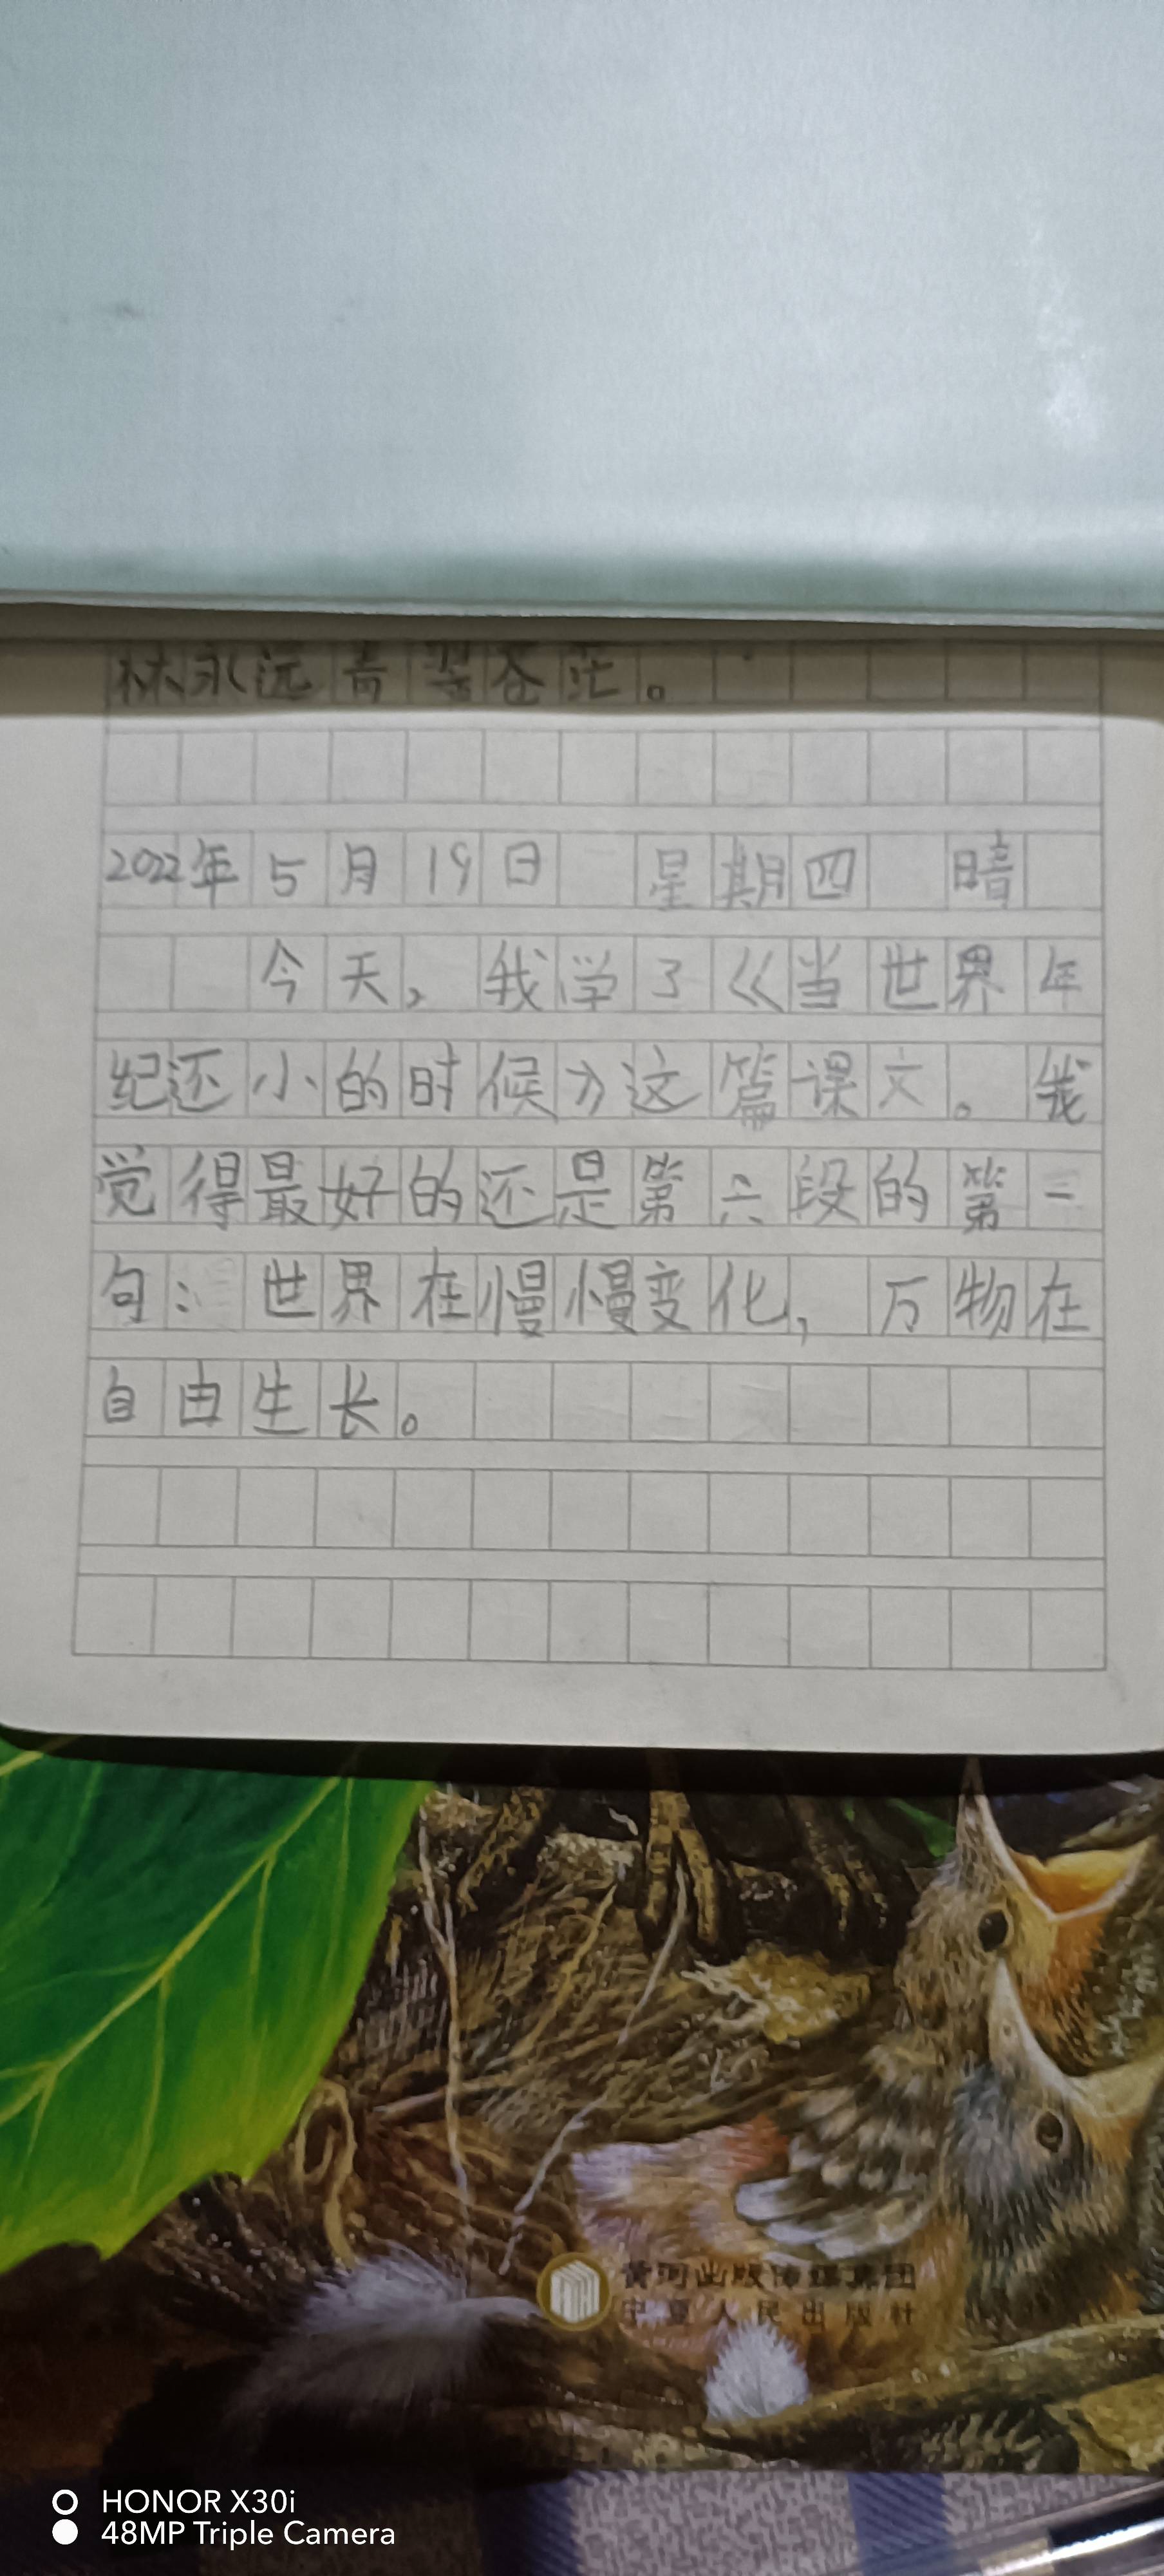 林永远青翠苍茫。
2022年5月19日 星期四 暗
今天，我学了《当世界年
纪还小的时候》这篇课文。我
觉得最好的还是第六段的第二
句：世界在慢慢变化，万物在
自由生长。
黄河出版传媒集团
宁夏人民出版社
HONOR X30i
48MP Triple Camera